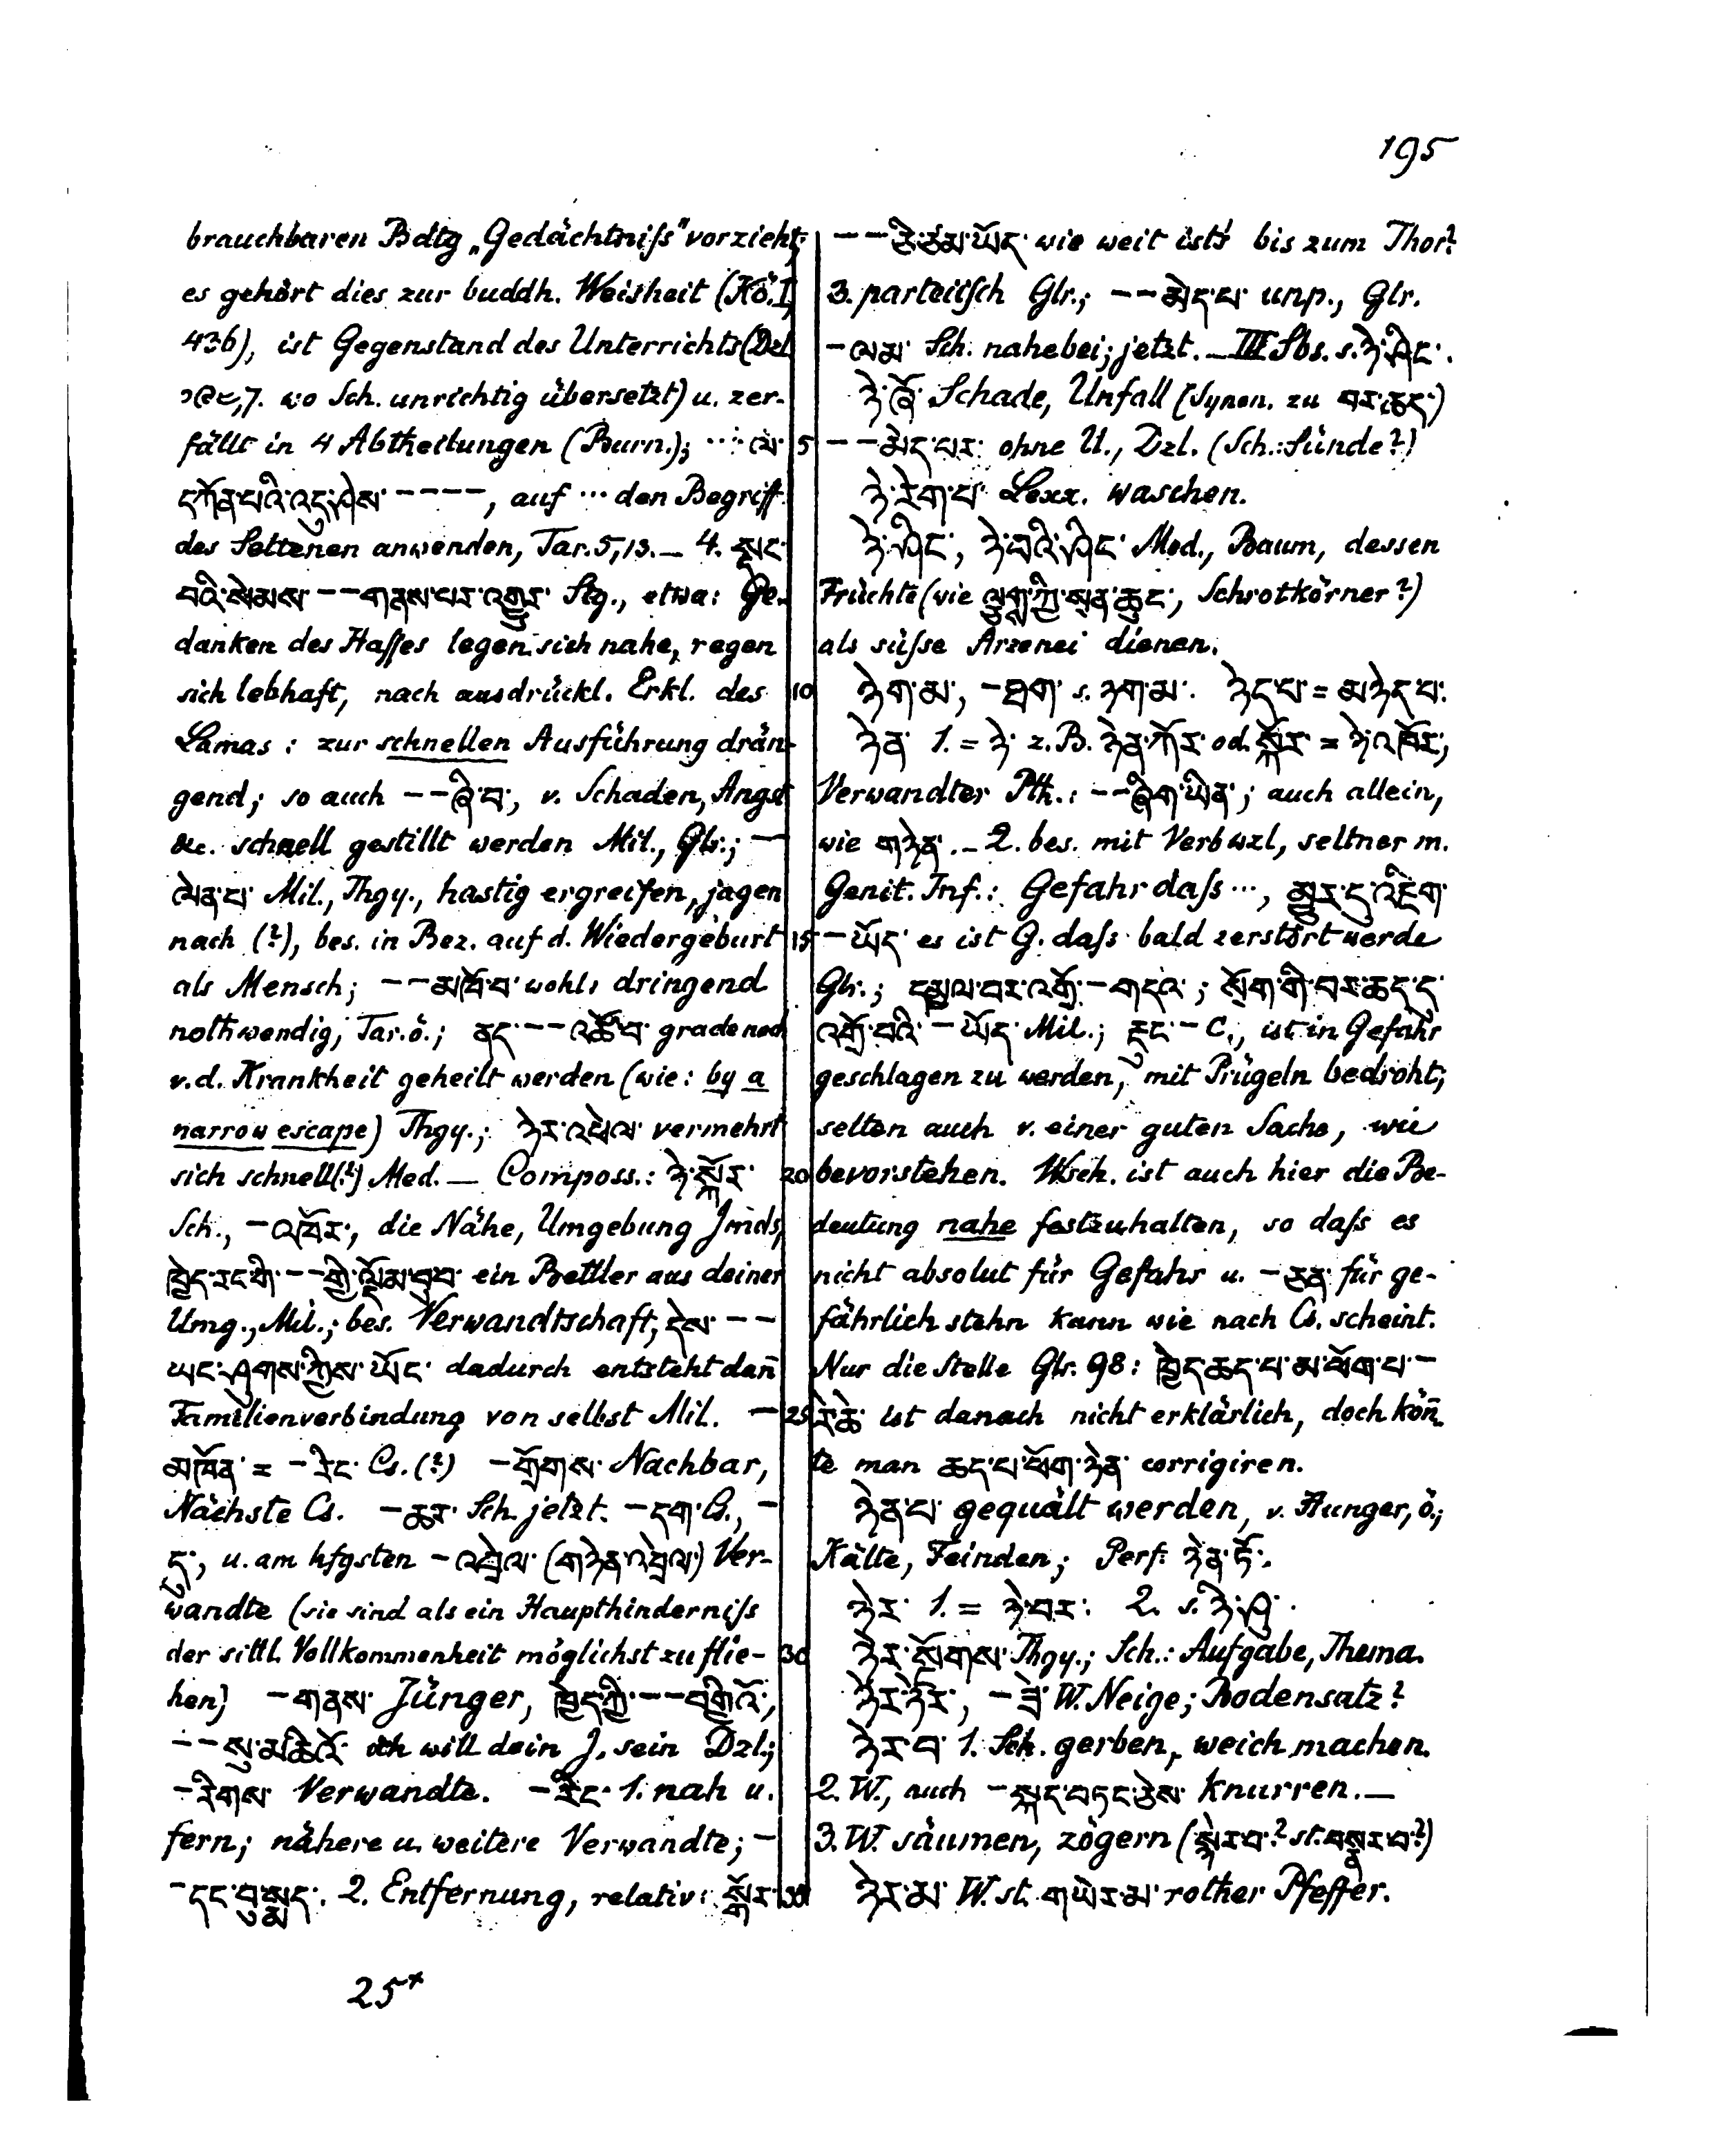 195
brauchbaren Bdtg „Gedächtniſs" vorzieht;
es gehört dies zur buddh. Weisheit (Kö. I,
436), ist Gegenstand des Unterrichts (Dzl.
༢༠༤,7. wo Sch. unrichtig übersetzt) u. zer-
fällt in 4 Abtheilungen (Burn.); ... ལ་
དཀོན་པའི་འདུ་ཤེས་ ----, auf ... den Begriff
des Seltenen anwenden, Tar. 5,13. _ 4. སྡང་
བའི་སེམས་ --གནས་པར་འགྱུར་ Stg., etwa: Ge-
danken des Haſses legen sich nahe, regen
sich lebhaft, nach ausdrückl. Erkl. des
Lamas: zur schnellen Ausführung drän-
gend; so auch --ཞི་བ་, v. Schaden, Angst
&c. schnell gestillt werden Mil., Glr.; --
ལེན་པ་ Mil., Thgy., hastig ergreifen, jagen
nach (?), bes. in Bez. auf d. Wiedergeburt
als Mensch; --མཁོ་བ་ wohl: dringend
nothwendig, Tar. ö.; ནད་--འཚོ་བ་ grade noch
v. d. Krankheit geheilt werden (wie: by a
narrow escape) Thgy.; ཉེར་འཕེལ་ vermehrt
sich schnell(?) Med. _ Composs.: ཉེ་སྐོར་
Sch., -འཁོར་, die Nähe, Umgebung Jmds,
ཁྱེད་རང་གི་--གྱི་ལྡོམ་བུ་བ་ ein Bettler aus deiner
Umg., Mil.; bes. Verwandtschaft, དེས་ --
ཡང་ཤུགས་ཀྱིས་ཡོང་ dadurch entsteht dañ
Familienverbindung von selbst Mil. -
མཁོན་ = -རིང་ Cs. (?) -གྲོགས་ Nachbar,
Nächste Cs. -ཆར་ Sch. jetzt. -དག་ Cs., -
དུ་, u. am hfgsten -འབྲེལ་ (གཉེན་འབྲེལ་) Ver-
wandte (sie sind als ein Haupthinderniſs
der sittl. Vollkommenheit möglichst zu flie-
hen) -གནས་ Jünger, ཁྱེད་ཀྱི་--བགྱིའོ་,
--སུ་མཆིའོ་ ich will dein J. sein Dzl.;
-རིགས་ Verwandte. -རིང་ 1. nah u.
fern; nähere u. weitere Verwandte; -
-དང་བུ་སྨད་. 2. Entfernung, relativ: སྒོར་
--ཅི་ཙམ་ཡོད་ wie weit ists bis zum Thor?
3. parteiisch Glr.; --མེད་པ་ unp., Glr.
-ལམ་ Sch. nahebei; jetzt. _ III Sbs. s. ཉེ་ཤིང་.
ཉེ་ཞོ་ Schade, Unfall (Synon. zu བར་ཆད་)
5 --མེད་པར་ ohne U., Dzl. (Sch.: Sünde?)
ཉེ་རེག་པ་ Lexx. waschen.
ཉེ་ཤིང་, ཉེ་བའི་ཤིང་ Med., Baum, dessen
Früchte (wie ལུག་ཀྱི་སྲན་ཆུང་, Schrotkörner?)
als süſse Arzenei dienen.
10 ཉེག་མ་, -ཐག་ s. ཉག་མ་. ཉེད་པ་ = མཉེད་པ་.
ཉེན་ 1. = ཉེ་ z. B. ཉེན་ཀོར་ od. སྐོར་ = ཉེ་འཁོར་,
Verwandter Pth.: --ཞིག་ཡིན་; auch allein,
wie གཉེན་. _ 2. bes. mit Verbwzl, seltner m.
Genit. Inf.: Gefahr daſs ..., མྱུར་དུ་འཇིག་
15 -ཡོད་ es ist G. daſs bald zerstört werde
Glr.; དམྱལ་བར་འགྲོ་-གདའ་; སྲོག་གི་བར་ཆད་དུ་
འགྲོ་བའི་-ཡོད་ Mil.; རྡུང་- C., ist in Gefahr
geschlagen zu werden, mit Prügeln bedroht;
selten auch v. einer guten Sache, wie
20 bevorstehen. Wsch. ist auch hier die Be-
deutung nahe festzuhalten, so daſs es
nicht absolut für Gefahr u. -ཅན་ für ge-
fährlich stehn kann wie nach Cs. scheint.
Nur die Stelle Glr. 98: ཁྱེད་ཆད་པ་མ་ཕོག་པ་-
25 རེ་ཆེ་ ist danach nicht erklärlich, doch köñ-
te man ཆད་པ་ཕོག་ཉེན་ corrigiren.
ཉེན་པ་ gequält werden, v. Hunger, ö.;
Kälte, Feinden; Perf. ཉེན་ཏོ་.
ཉེར་ 1. = ཉེ་བར་. 2. s. ཉི་ཤུ་.
30 ཉེར་སོགས་ Thgy.; Sch.: Aufgabe, Thema.
ཉེར་ཉེར་, -ཟེ་ W. Neige; Bodensatz?
ཉེར་བ་ 1. Sch. gerben, weich machen.
2. W., auch -སྐད་བཏང་ཅེས་ knurren. _
3. W. säumen, zögern (སྙེར་བ་? st. བསྙར་བ་?)
35 ཉེར་མ་ W. st. གཡེར་མ་ rother Pfeffer.
25*